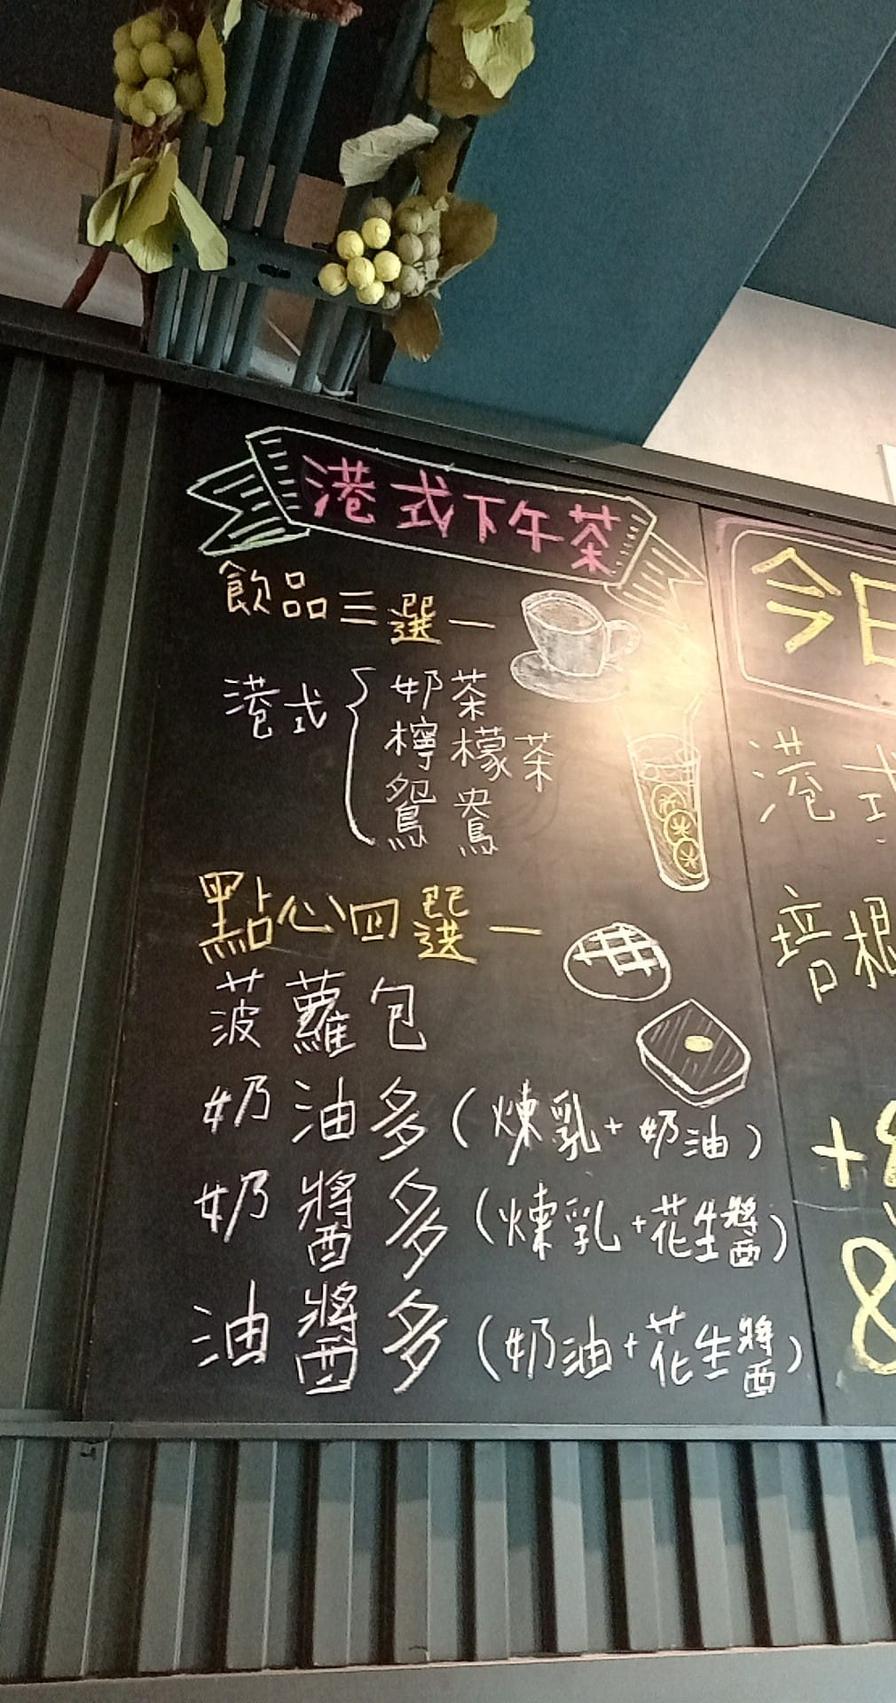 港式下午茶
飲品三選一
港式{奶茶
檸檬茶
鴛鴦
點心四選一
菠蘿包
奶油多(煉乳+奶油)
奶醬多(煉乳+花生醬)
油醬多(奶油+花生醬)
今日
港式
培根
+8
8